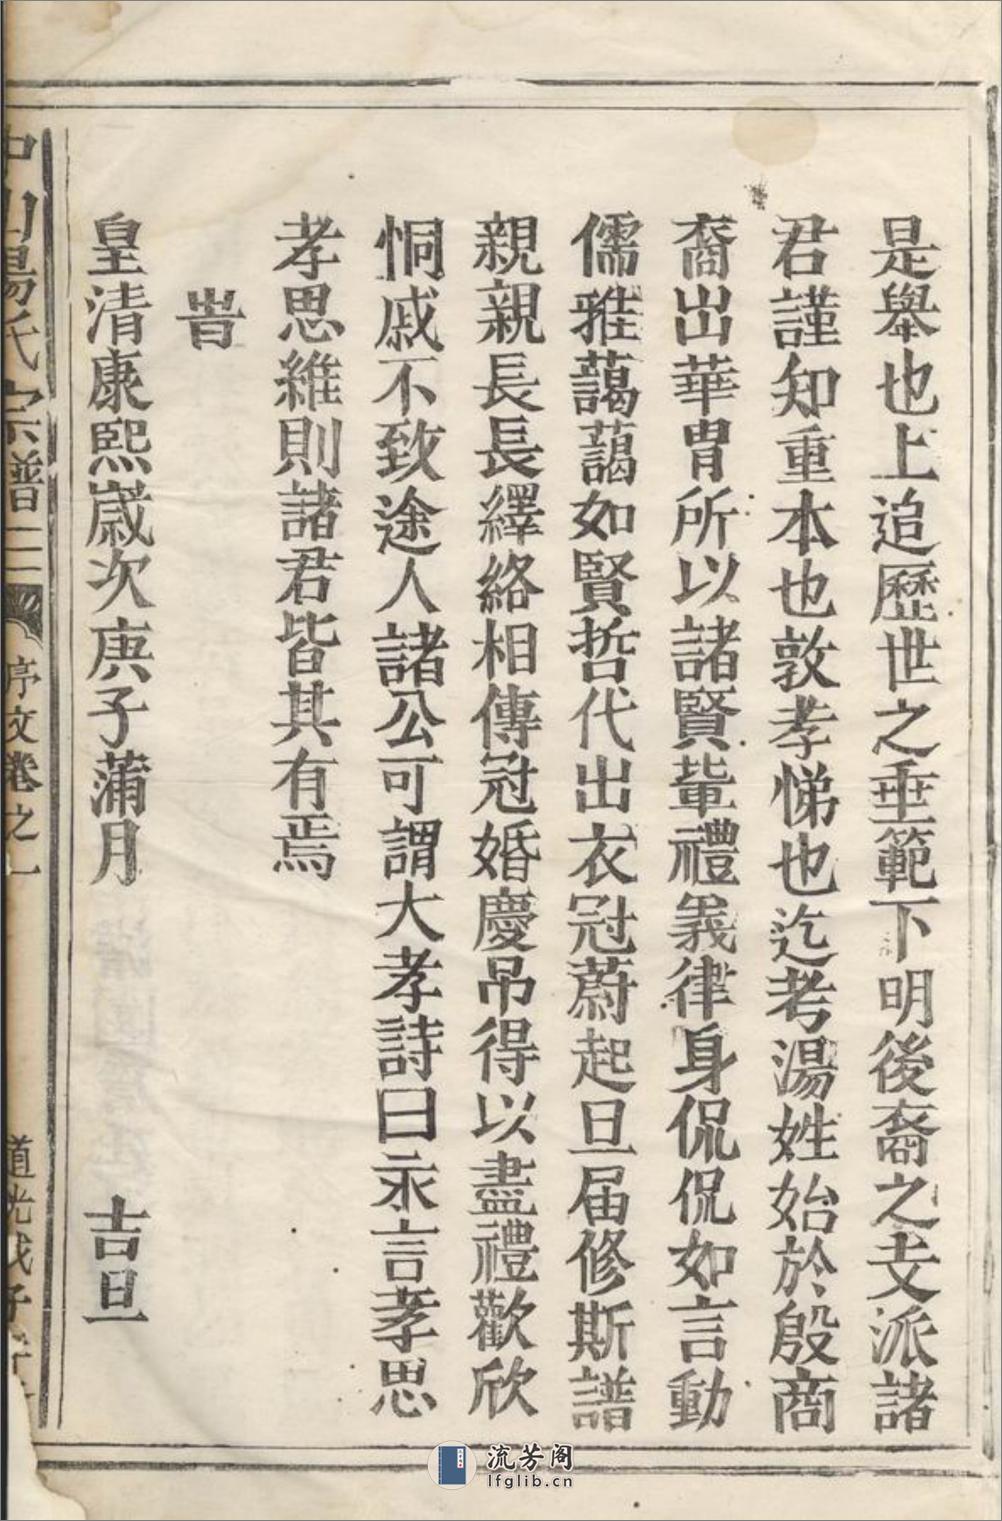 是舉也上追歷世之垂範下明後裔之支派諸
君謹知重本也敦孝悌也迄考湯姓始於殷商
裔出華胄所以諸賢輩禮義律身侃侃如言動
儒雅藹藹如賢哲代出衣冠蔚起旦届修斯譜
親親長長繹絡相傳冠婚慶吊得以盡禮歡欣
恫戚不致途人諸公可謂大孝詩曰永言孝思
孝思維則諸君皆其有焉
旹
皇清康熙歲次庚子蒲月 吉旦
中山湯氏宗譜 序文卷之一 道光戊子年
流芳阁
lfglib.cn